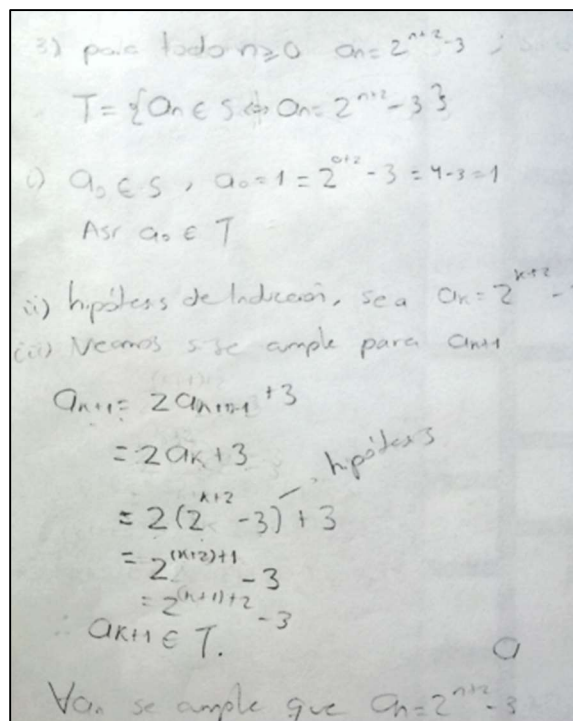 3) para todo n≥0 an = 2^{n+2} - 3 ;
T = {an ∈ S ⇔ an = 2^{n+2} - 3}
i) a0 ∈ S, a0 = 1 = 2^{0+2} - 3 = 4-3 = 1
Asr a0 ∈ T
ii) hipótesis de Inducción, sea ak = 2^{k+2} -
iii) Veamos si se cumple para ak+1
ak+1 = 2ak+1-1 + 3
= 2ak + 3
hipótesis
= 2(2^{k+2} - 3) + 3
= 2^{(k+2)+1} - 3
= 2^{(k+1)+2} - 3
ak+1 ∈ T.
a
∀an se cumple que an = 2^{n+2} - 3